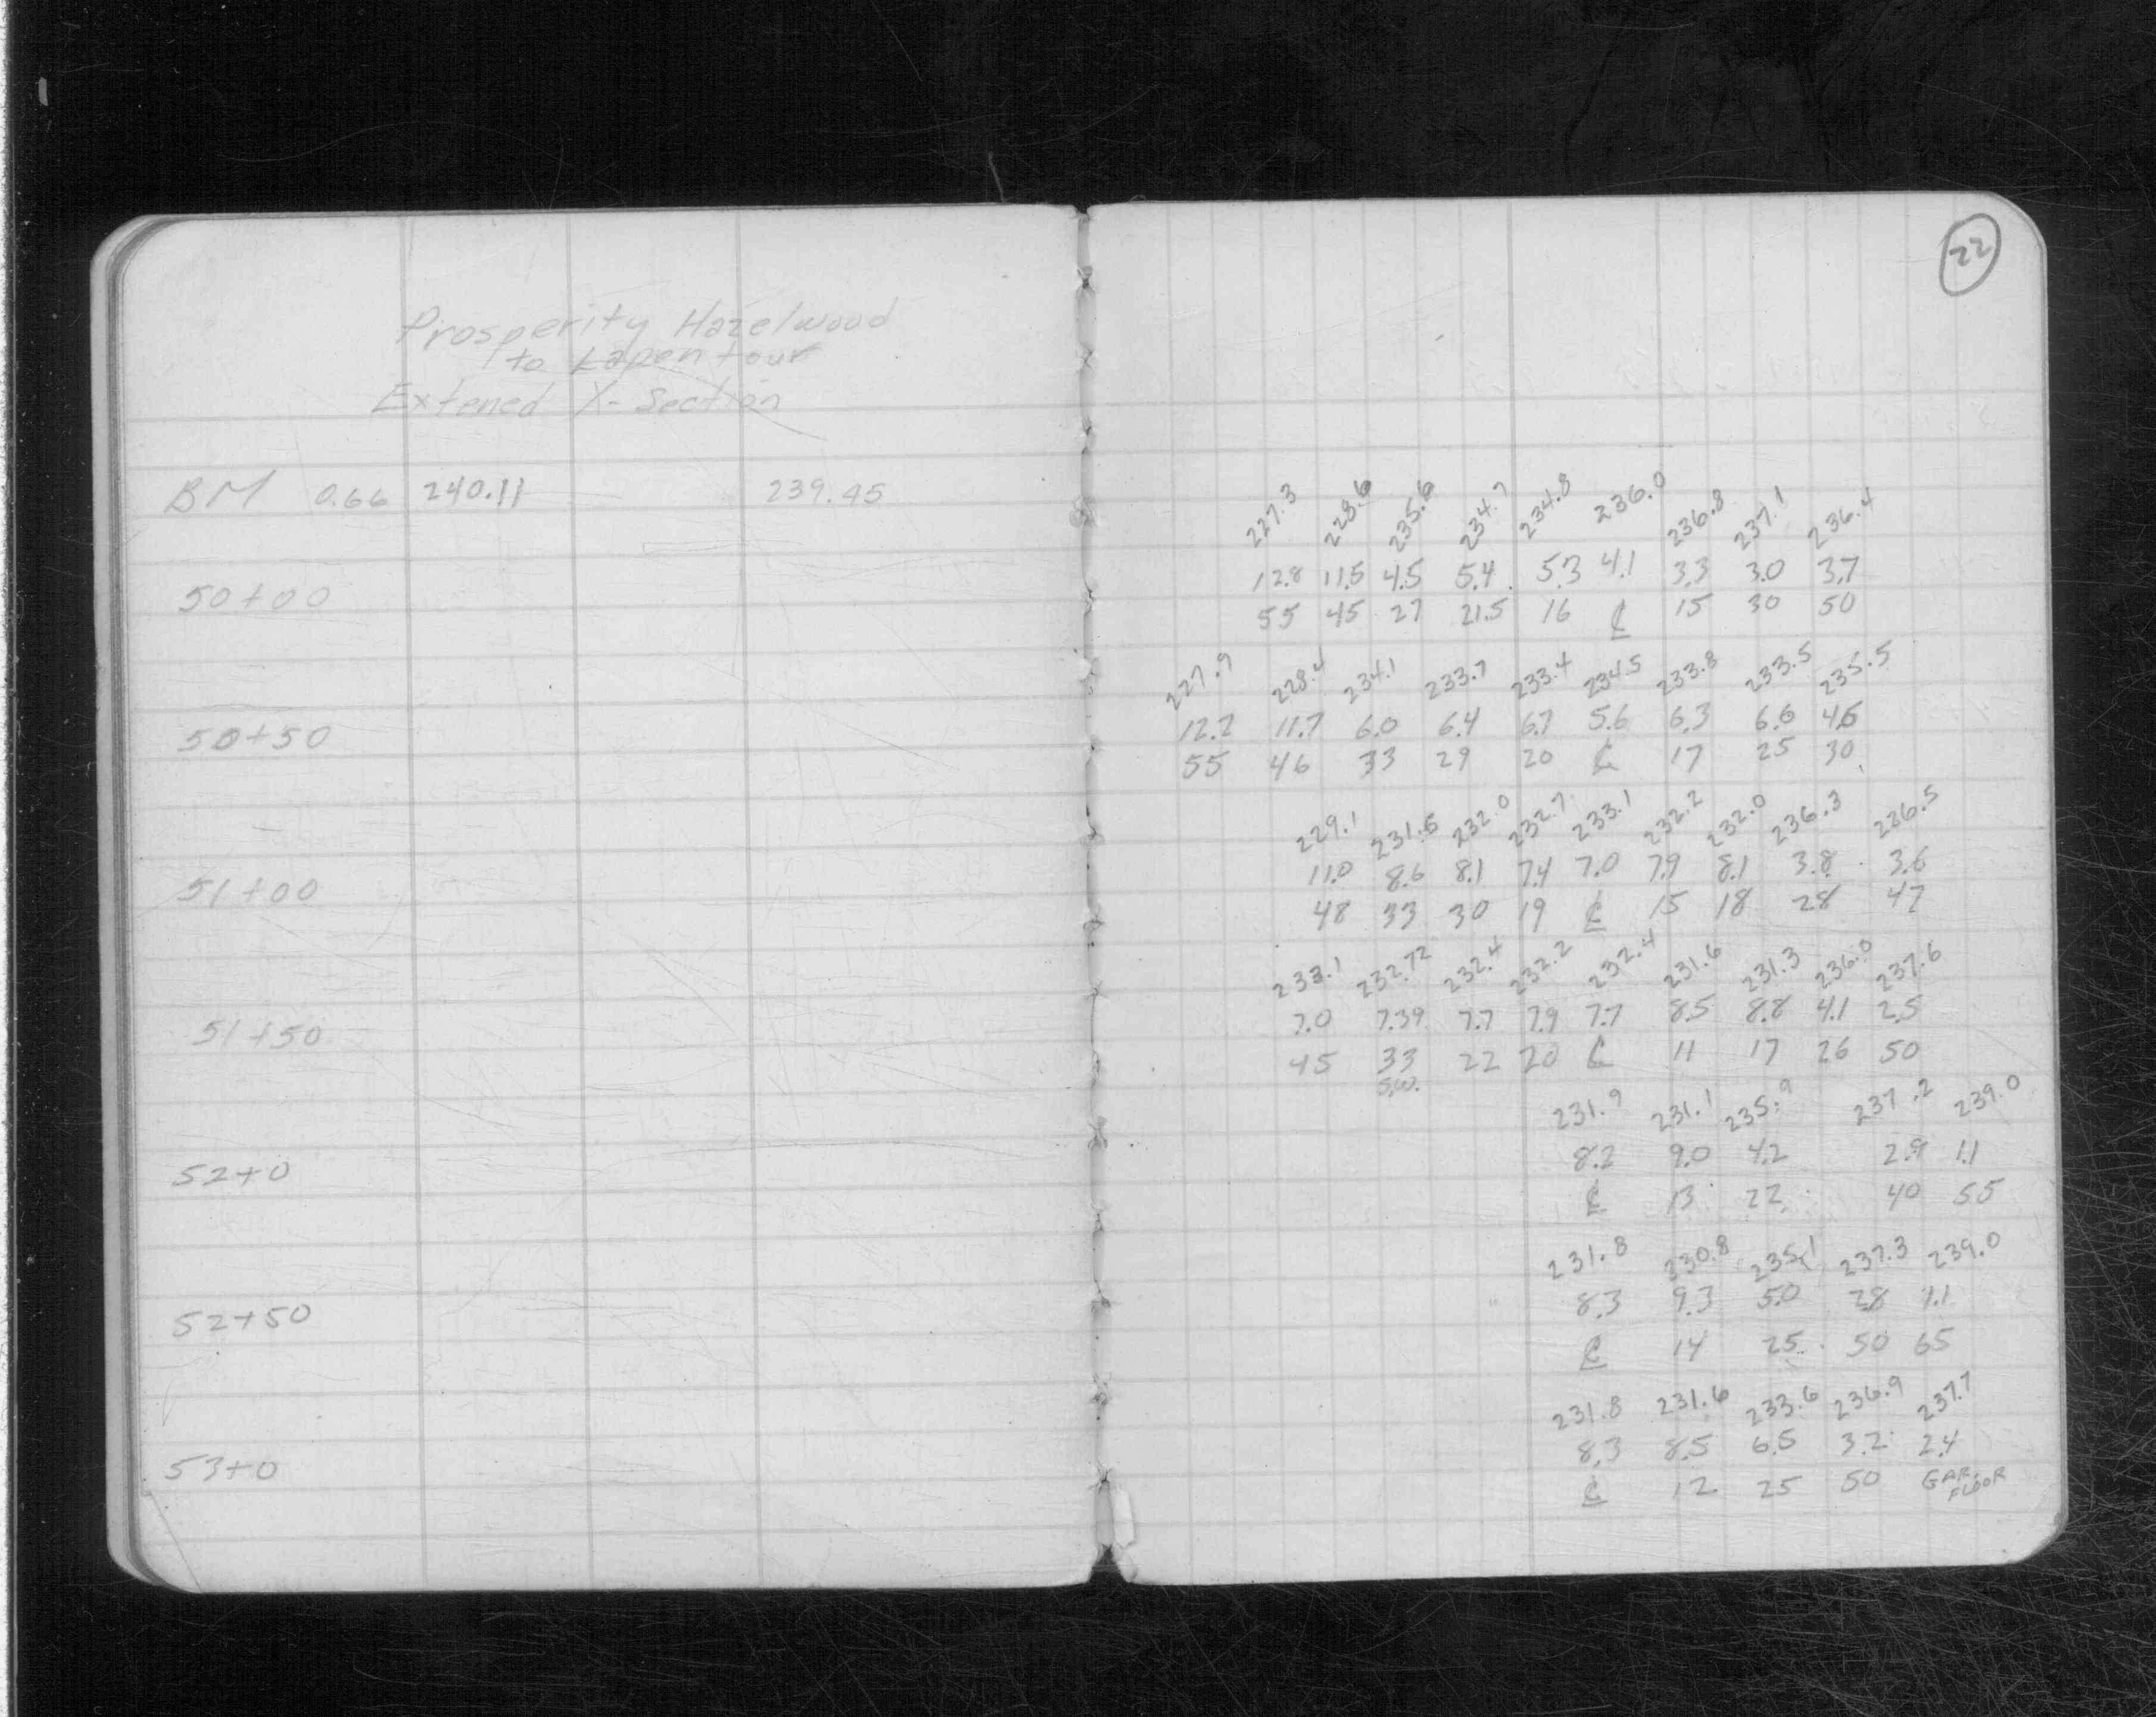 22
Prosperity Hazelwood
to Lapentour
Extened X-Section
BM 0.66 240.11 239.45
227.3 228.6 235.6 234.7 234.8 236.0 236.8 237.1 236.4
12.8 11.5 4.5 5.4 5.3 4.1 3.3 3.0 3.7
50+00 55 45 27 21.5 16 ℄ 15 30 50
227.9 228.4 234.1 233.7 233.4 234.5 233.8 233.5 235.5
50+50 12.2 11.7 6.0 6.4 6.7 5.6 6.3 6.6 4.6
55 46 33 29 20 ℄ 17 25 30
229.1 231.5 232.0 232.7 233.1 232.2 232.0 236.3 226.5
11.0 8.6 8.1 7.4 7.0 7.9 8.1 3.8 3.6
51+00 48 33 30 19 ℄ 15 18 28 47
233.1 232.72 232.4 232.2 232.4 231.6 231.3 236.0 237.6
7.0 7.39 7.7 7.9 7.7 8.5 8.8 4.1 2.5
51+50 45 33 22 20 ℄ 11 17 26 50
S.W.
231.9 231.1 235.9 237.2 239.0
8.2 9.0 4.2 2.9 1.1
52+0 ℄ 13 22 40 55
231.8 230.8 235.1 237.3 239.0
8.3 9.3 5.0 2.8 1.1
52+50 ℄ 14 25 50 65
231.8 231.6 233.6 236.9 237.7
8.3 8.5 6.5 3.2 2.4
53+0 ℄ 12 25 50 GAR. FLOOR